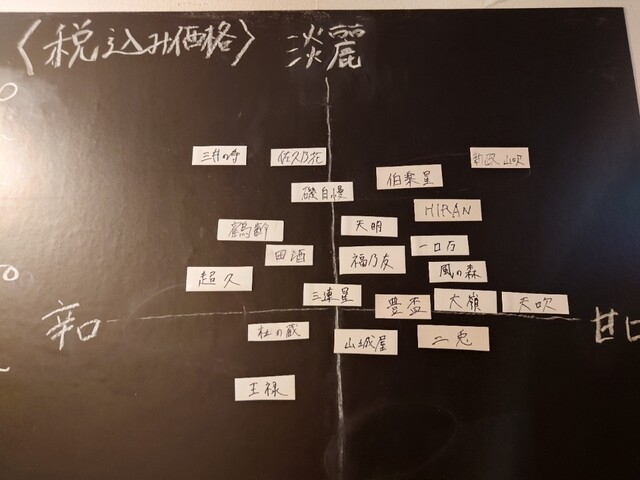 〈税込み価格〉 淡麗
三井の寿 佐久乃花 新政 山吹
伯楽星
磯自慢
HIRAN
鶴齢 天明
田酒 福乃友 一口万
超久 風の森
三連星 豊盃 大嶺 天吹
辛口 甘口
杜の蔵 山城屋 二兎
王禄